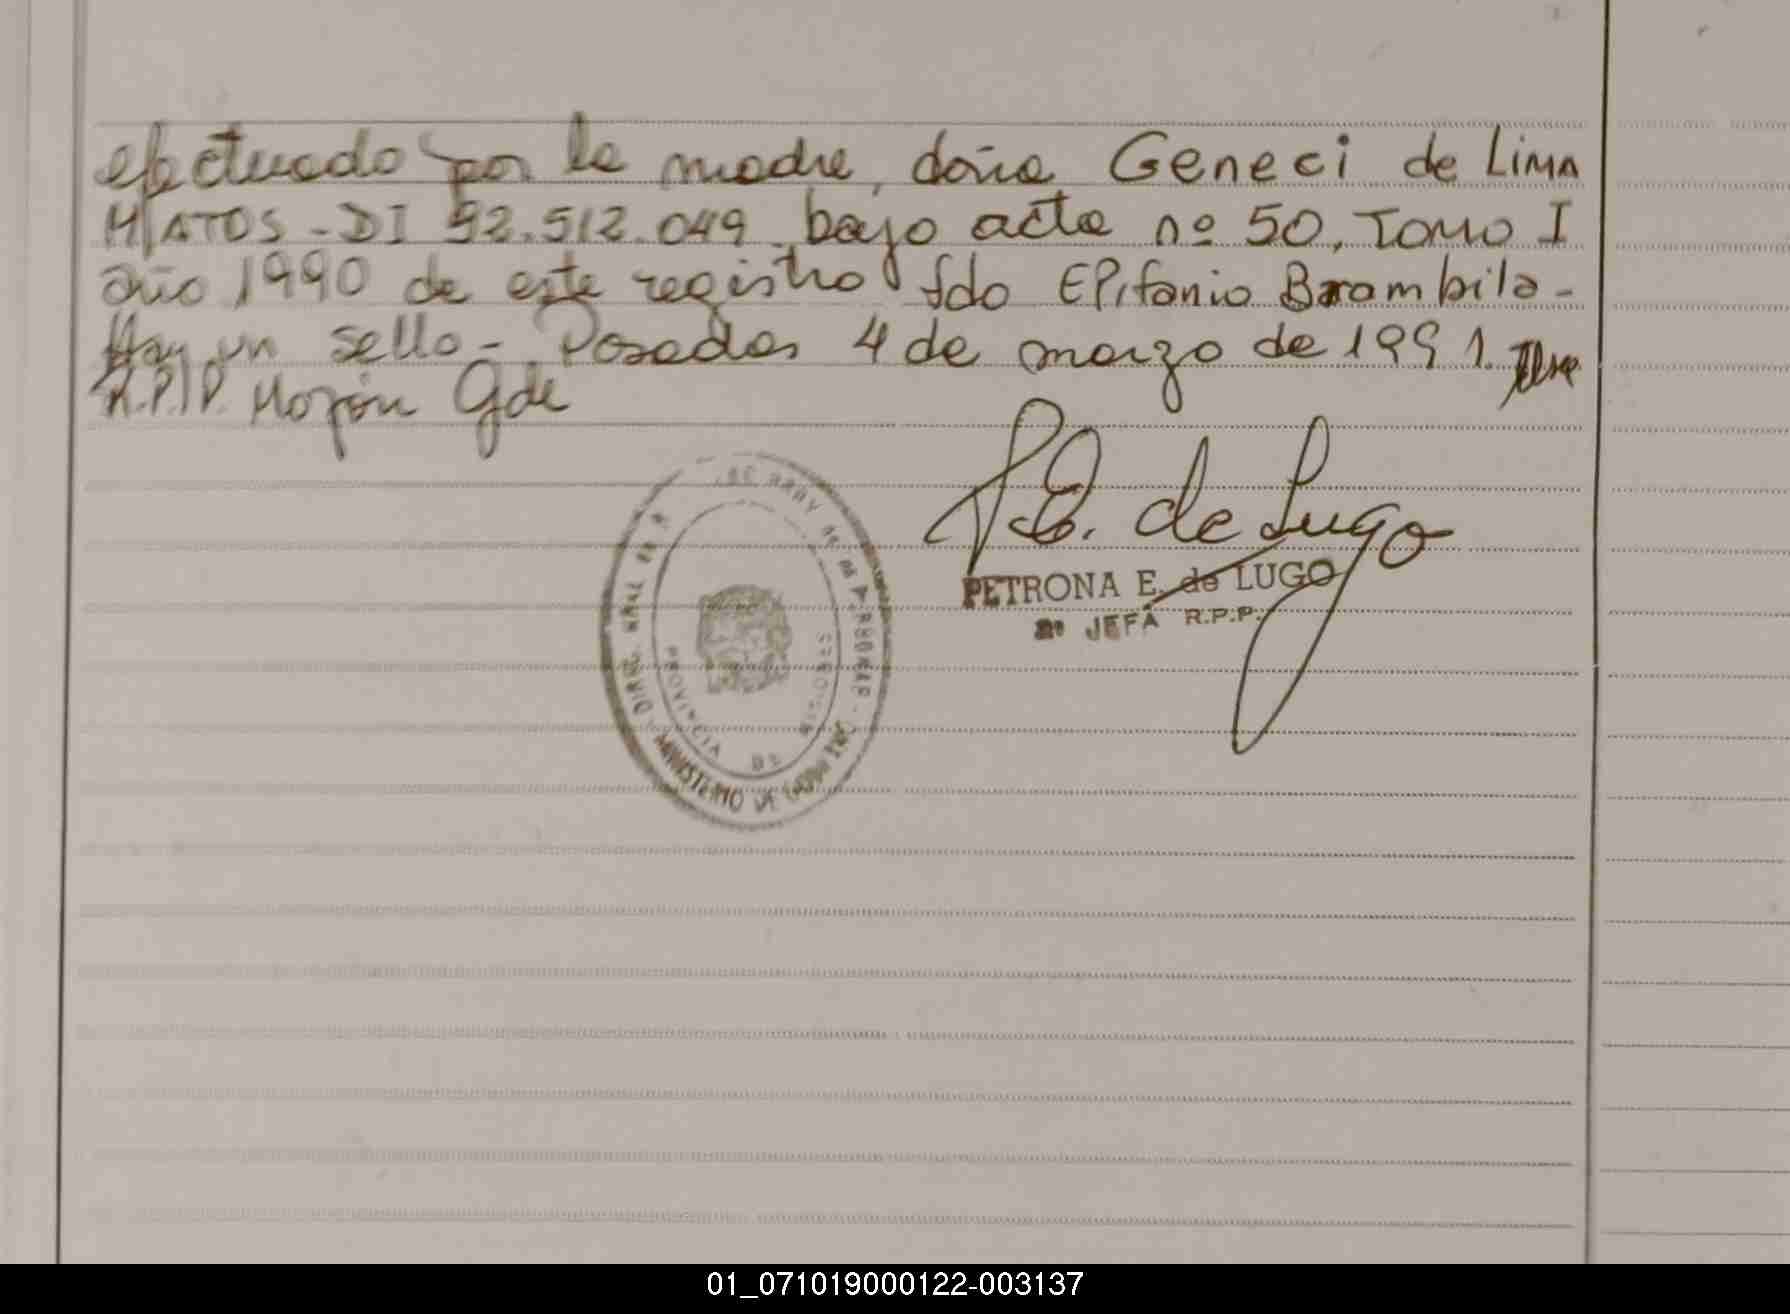 efectuado por la madre, doña Geneci de Lima
MATOS - DI 92.512.049 bajo acta nº 50, Tomo I
año 1990 de este registro fdo Epifanio Brambila -
Hay un sello - Posadas 4 de marzo de 1991.
R.P.P. Mojón Gde
P.E. de Lugo
PETRONA E. de LUGO
2º JEFA R.P.P.
PROVINCIA DE MISIONES
MINISTERIO DE
01_071019000122-003137